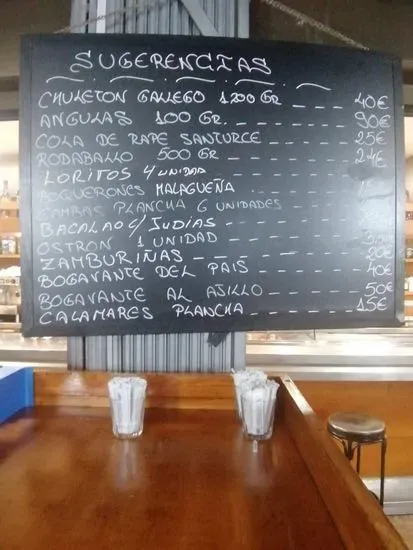 SUGERENCIAS
CHULETON GALLEGO 1200 GR. 40€
ANGULAS 100 GR. 90€
COLA DE RAPE SANTURCE 25€
RODABALLO 500 GR. 24€
LORITOS 4 UNIDAD
BOQUERONES MALAGUEÑA
GAMBAS PLANCHA 6 UNIDADES
BACALAO C/ JUDIAS
OSTRON 1 UNIDAD
ZAMBURIÑAS 20€
BOGAVANTE DEL PAIS 40€
BOGAVANTE AL AJILLO 50€
CALAMARES PLANCHA 15€